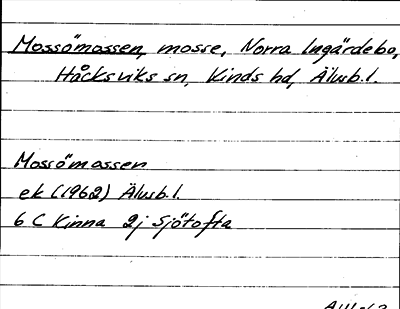 Mossömossen, mosse, Norra Ingärdebo,
Håcksviks sn, Kinds hd, Älvsb.l.
Mossömossen
ek (1962) Älvsb.l.
6 C Kinna 2j Sjötofta